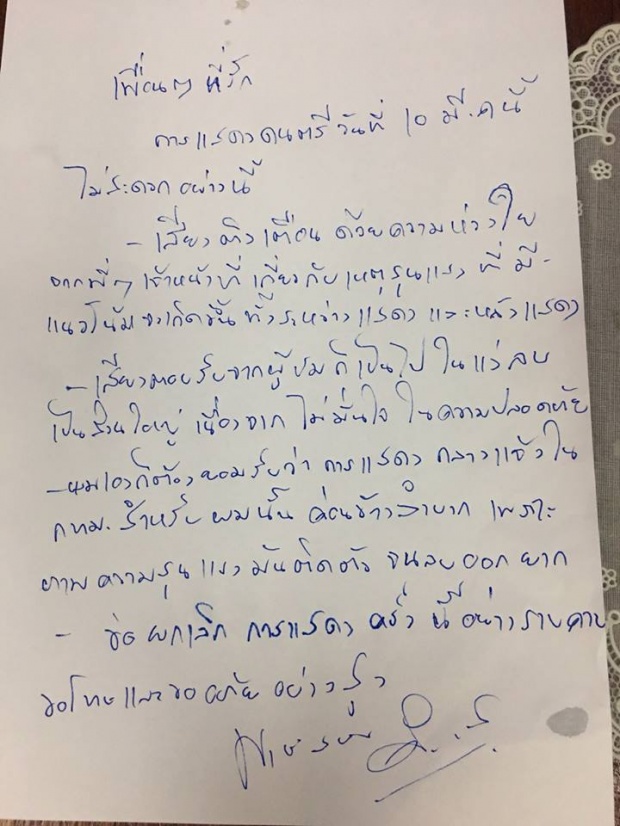 เพื่อนๆ ที่รัก
การแสดงดนตรี วันที่ 10 มี.ค นี้
ไม่สะดวก อย่างนี้
- เสียงติงเตือน ด้วยความห่วงใย
จากพี่ๆ เจ้าหน้าที่ เกี่ยวกับ เหตุรุนแรง ที่ มี-
แนวโน้มจะเกิดขึ้น ทั้งระหว่างแสดง และหลังแสดง
- เสียงตอบรับจากผู้ชมก็เป็นไป ในแง่ลบ
เป็นส่วนใหญ่ เนื่องจาก ไม่มั่นใจ ในความปลอดภัย
- ผมเองก็ต้องยอมรับว่า การแสดง กลางแจ้งใน
กทม. สำหรับ ผมนั้น ค่อนข้างลำบาก เพราะ
ภาพ ความรุนแรง มันติดตัว จนลบออก ยาก
- ขอ ยกเลิก การแสดง ครั้งนี้ อย่างราบคาบ
ขอโทษและขออภัย อย่างสูง